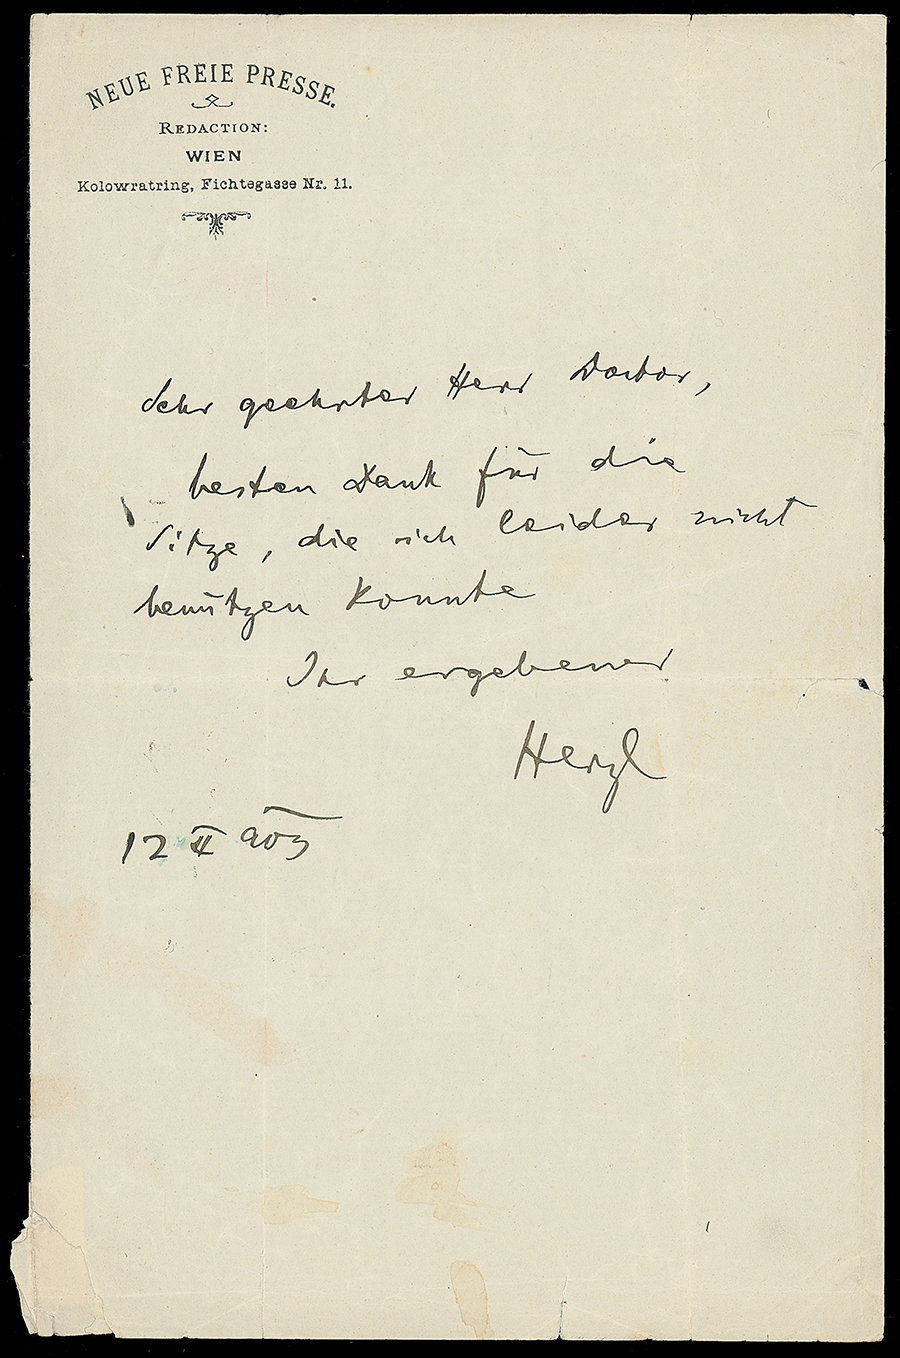 NEUE FREIE PRESSE.
REDACTION:
WIEN
Kolowratring, Fichtegasse Nr. 11.
Sehr geehrter Herr Doctor,
besten Dank für die
Sitze, die ich leider nicht
benützen konnte
Ihr ergebener
Herzl
12 II 903